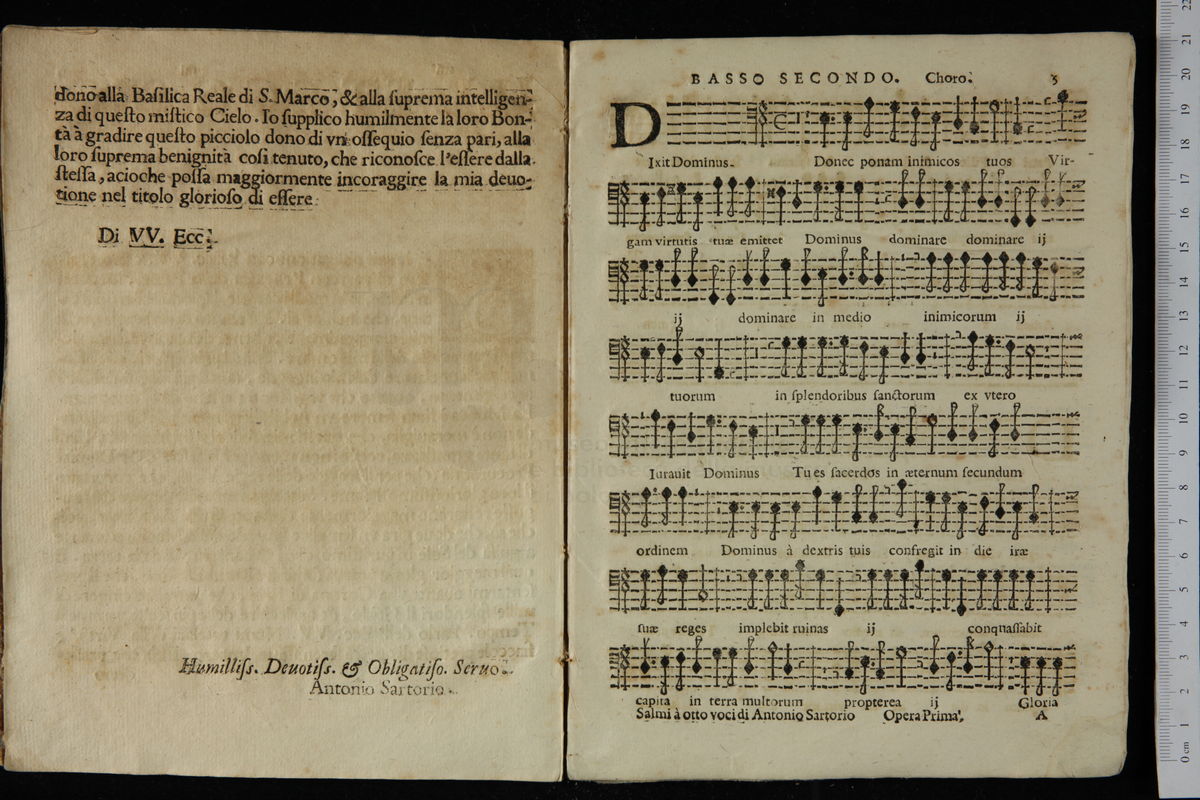 dono alla Basilica Reale di S. Marco, & alla suprema intelligen-
za di questo mistico Cielo. Io supplico humilmente la loro Bon-
tà à gradire questo picciolo dono di vn ossequio senza pari, alla
loro suprema benignità così tenuto, che riconosce l'essere dalla
stessa, acioche possa maggiormente incoraggire la mia deuo-
tione nel titolo glorioso di essere
Di VV. Ecc.
Humilliss. Deuotiss. & Obligatiss. Seruo.
Antonio Sartorio.
BASSO SECONDO. Choro. 3
DIxit Dominus. Donec ponam inimicos tuos Vir-
gam virtutis tuæ emittet Dominus dominare dominare ij
ij dominare in medio inimicorum ij
tuorum in splendoribus sanctorum ex vtero
Iurauit Dominus Tu es sacerdos in æternum secundum
ordinem Dominus à dextris tuis confregit in die iræ
suæ reges implebit ruinas ij conquassabit
capita in terra multorum propterea ij Gloria
Salmi à otto voci di Antonio Sartorio Opera Prima. A
0 cm 1 2 3 4 5 6 7 8 9 10 11 12 13 14 15 16 17 18 19 20 21 22